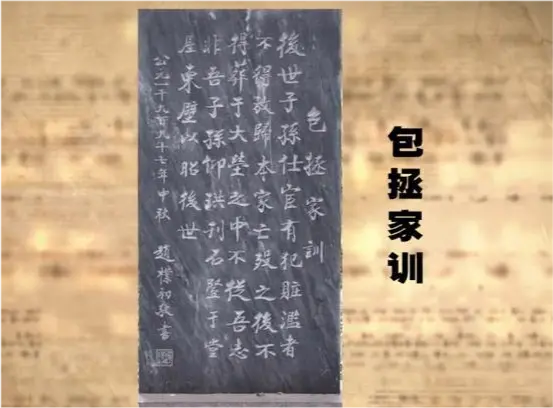 包拯家训
包拯家訓
後世子孫仕宦有犯贓濫者
不得放歸本家亡殁之後不
得葬于大塋之中不從吾志
非吾子孫仰珙刊石竪于堂
屋東壁以昭後世
公元一千九百九十七年中秋 趙樸初敬書